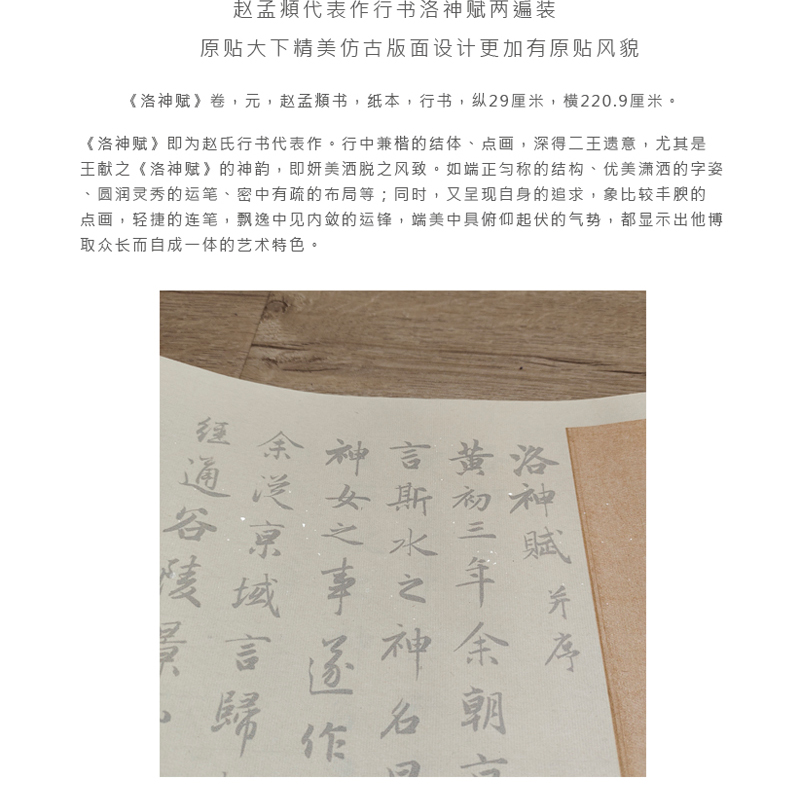 赵孟頫代表作行书洛神赋两遍装
原贴大下精美仿古版面设计更加有原贴风貌
《洛神赋》卷，元，赵孟頫书，纸本，行书，纵29厘米，横220.9厘米。
《洛神赋》即为赵氏行书代表作。行中兼楷的结体、点画，深得二王遗意，尤其是
王献之《洛神赋》的神韵，即妍美洒脱之风致。如端正匀称的结构、优美潇洒的字姿
、圆润灵秀的运笔、密中有疏的布局等；同时，又呈现自身的追求，象比较丰腴的
点画，轻捷的连笔，飘逸中见内敛的运锋，端美中具俯仰起伏的气势，都显示出他博
取众长而自成一体的艺术特色。
洛神賦并序
黄初三年余朝京
言斯水之神名
神女之事遂作
余從京域言歸
經通谷陵景